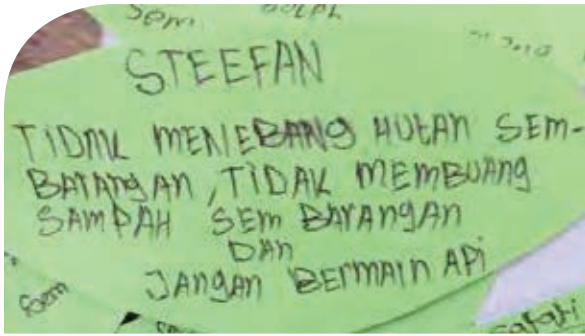 STEEFAN
TIDAK MENEBANG HUTAN SEM-
BARANGAN, TIDAK MEMBUANG
SAMPAH SEMBARANGAN
DAN
JANGAN BERMAIN API